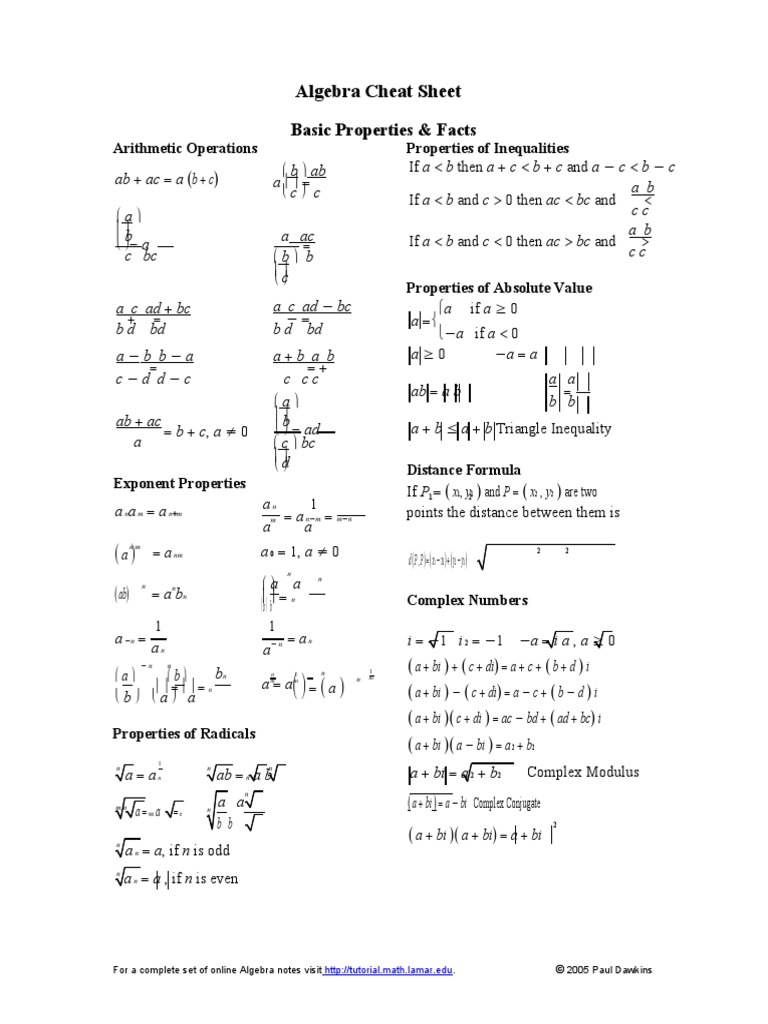 Algebra Cheat Sheet
Basic Properties & Facts
Arithmetic Operations
ab + ac = a (b + c)
a ( b / c ) = ab / c
( a / b ) / c = a / bc
a / ( b / c ) = ac / b
a / b + c / d = ad + bc / bd
a / b − c / d = ad − bc / bd
a − b / c − d = b − a / d − c
a + b / c = a / c + b / c
ab + ac / a = b + c, a ≠ 0
( a / b ) / ( c / d ) = ad / bc
Exponent Properties
a n a m = a n+m
a n / a m = a n−m = 1 / a m−n
( a n ) m = a nm
a 0 = 1, a ≠ 0
(ab) n = a n b n
( a / b ) n = a n / b n
a −n = 1 / a n
1 / a −n = a n
( a / b ) −n = ( b / a ) n = b n / a n
Properties of Radicals
n √ a = a 1 / n
n √ ab = n √ a n √ b
n √ a / b = n √ a / n √ b
n √ a n = a, if n is odd
n √ a n = | a |, if n is even
Properties of Inequalities
If a < b then a + c < b + c and a − c < b − c
If a < b and c > 0 then ac < bc and a / c < b / c
If a < b and c < 0 then ac > bc and a / c > b / c
Properties of Absolute Value
|a| = { a if a ≥ 0
−a if a < 0
|a| ≥ 0 −a = a | | | |
|ab| = |a| |b| | a / b | = |a| / |b|
|a + b| ≤ |a| + |b| Triangle Inequality
Distance Formula
If P1 = ( x1, y1 ) and P = ( x2 , y2 ) are two
points the distance between them is
Complex Numbers
i = √−1 i 2 = −1 √−a = i √a , a ≥ 0
( a + bi ) + ( c + di ) = a + c + ( b + d ) i
( a + bi ) − ( c + di ) = a − c + ( b − d ) i
( a + bi )( c + di ) = ac − bd + ( ad + bc) i
( a + bi )( a − bi ) = a2 + b2
|a + bi| = √a2 + b2 Complex Modulus
( a + bi ) = a − bi Complex Conjugate
( a + bi )( a + bi) = |a + bi| 2
For a complete set of online Algebra notes visit http://tutorial.math.lamar.edu.
© 2005 Paul Dawkins